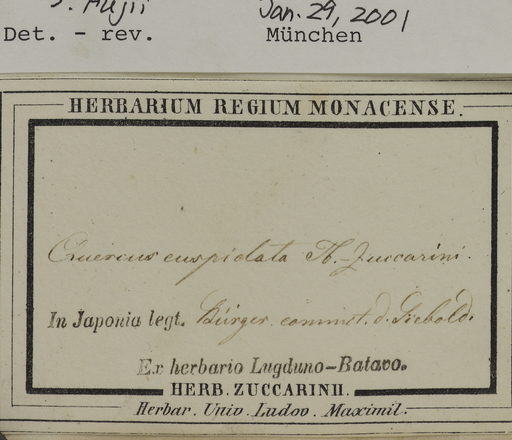 S. Fujii Jan. 29, 2001
Det. - rev. München
HERBARIUM REGIUM MONACENSE.
Quercus cuspidata Th. Zuccarini.
In Japonia legt. Bürger. commct. d. Siebold.
Ex herbario Lugduno-Batavo.
HERB. ZUCCARINII.
Herbar. Univ. Ludov. Maximil.